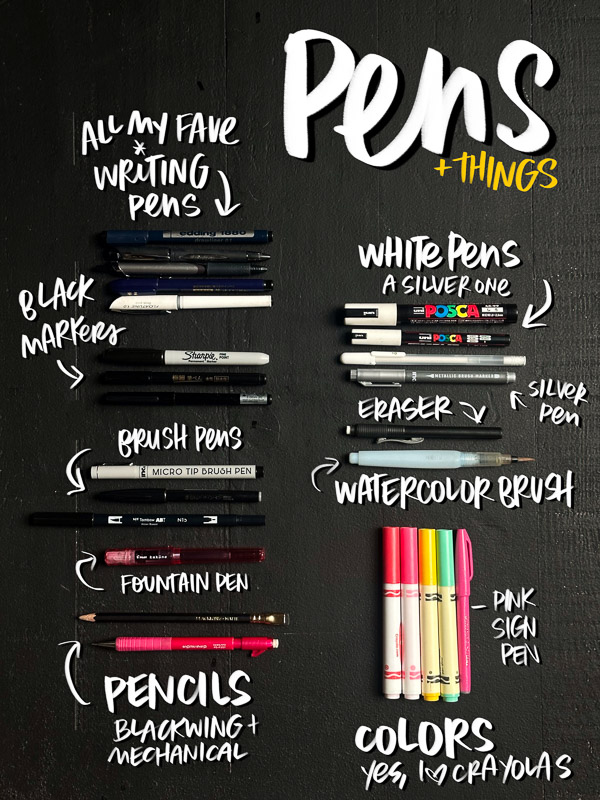 Pens
+THINGS
ALL MY FAVE
*
WRITING
Pens
edding 1880
drawliner 0.1
BLACK
MARKERS
Sharpie
FINE POINT
BRUSH PENS
MICRO TIP BRUSH PEN
Tombow ABT N15
FOUNTAIN PEN
PENCILS
BLACKWING +
MECHANICAL
WHITE Pens
A SILVER ONE
uni POSCA
uni POSCA
METALLIC BRUSH MARKER
SILVER
Pen
ERASER
WATERCOLOR BRUSH
PINK
SIGN
PEN
COLORS
yes, I ♡ CRAYOLAS